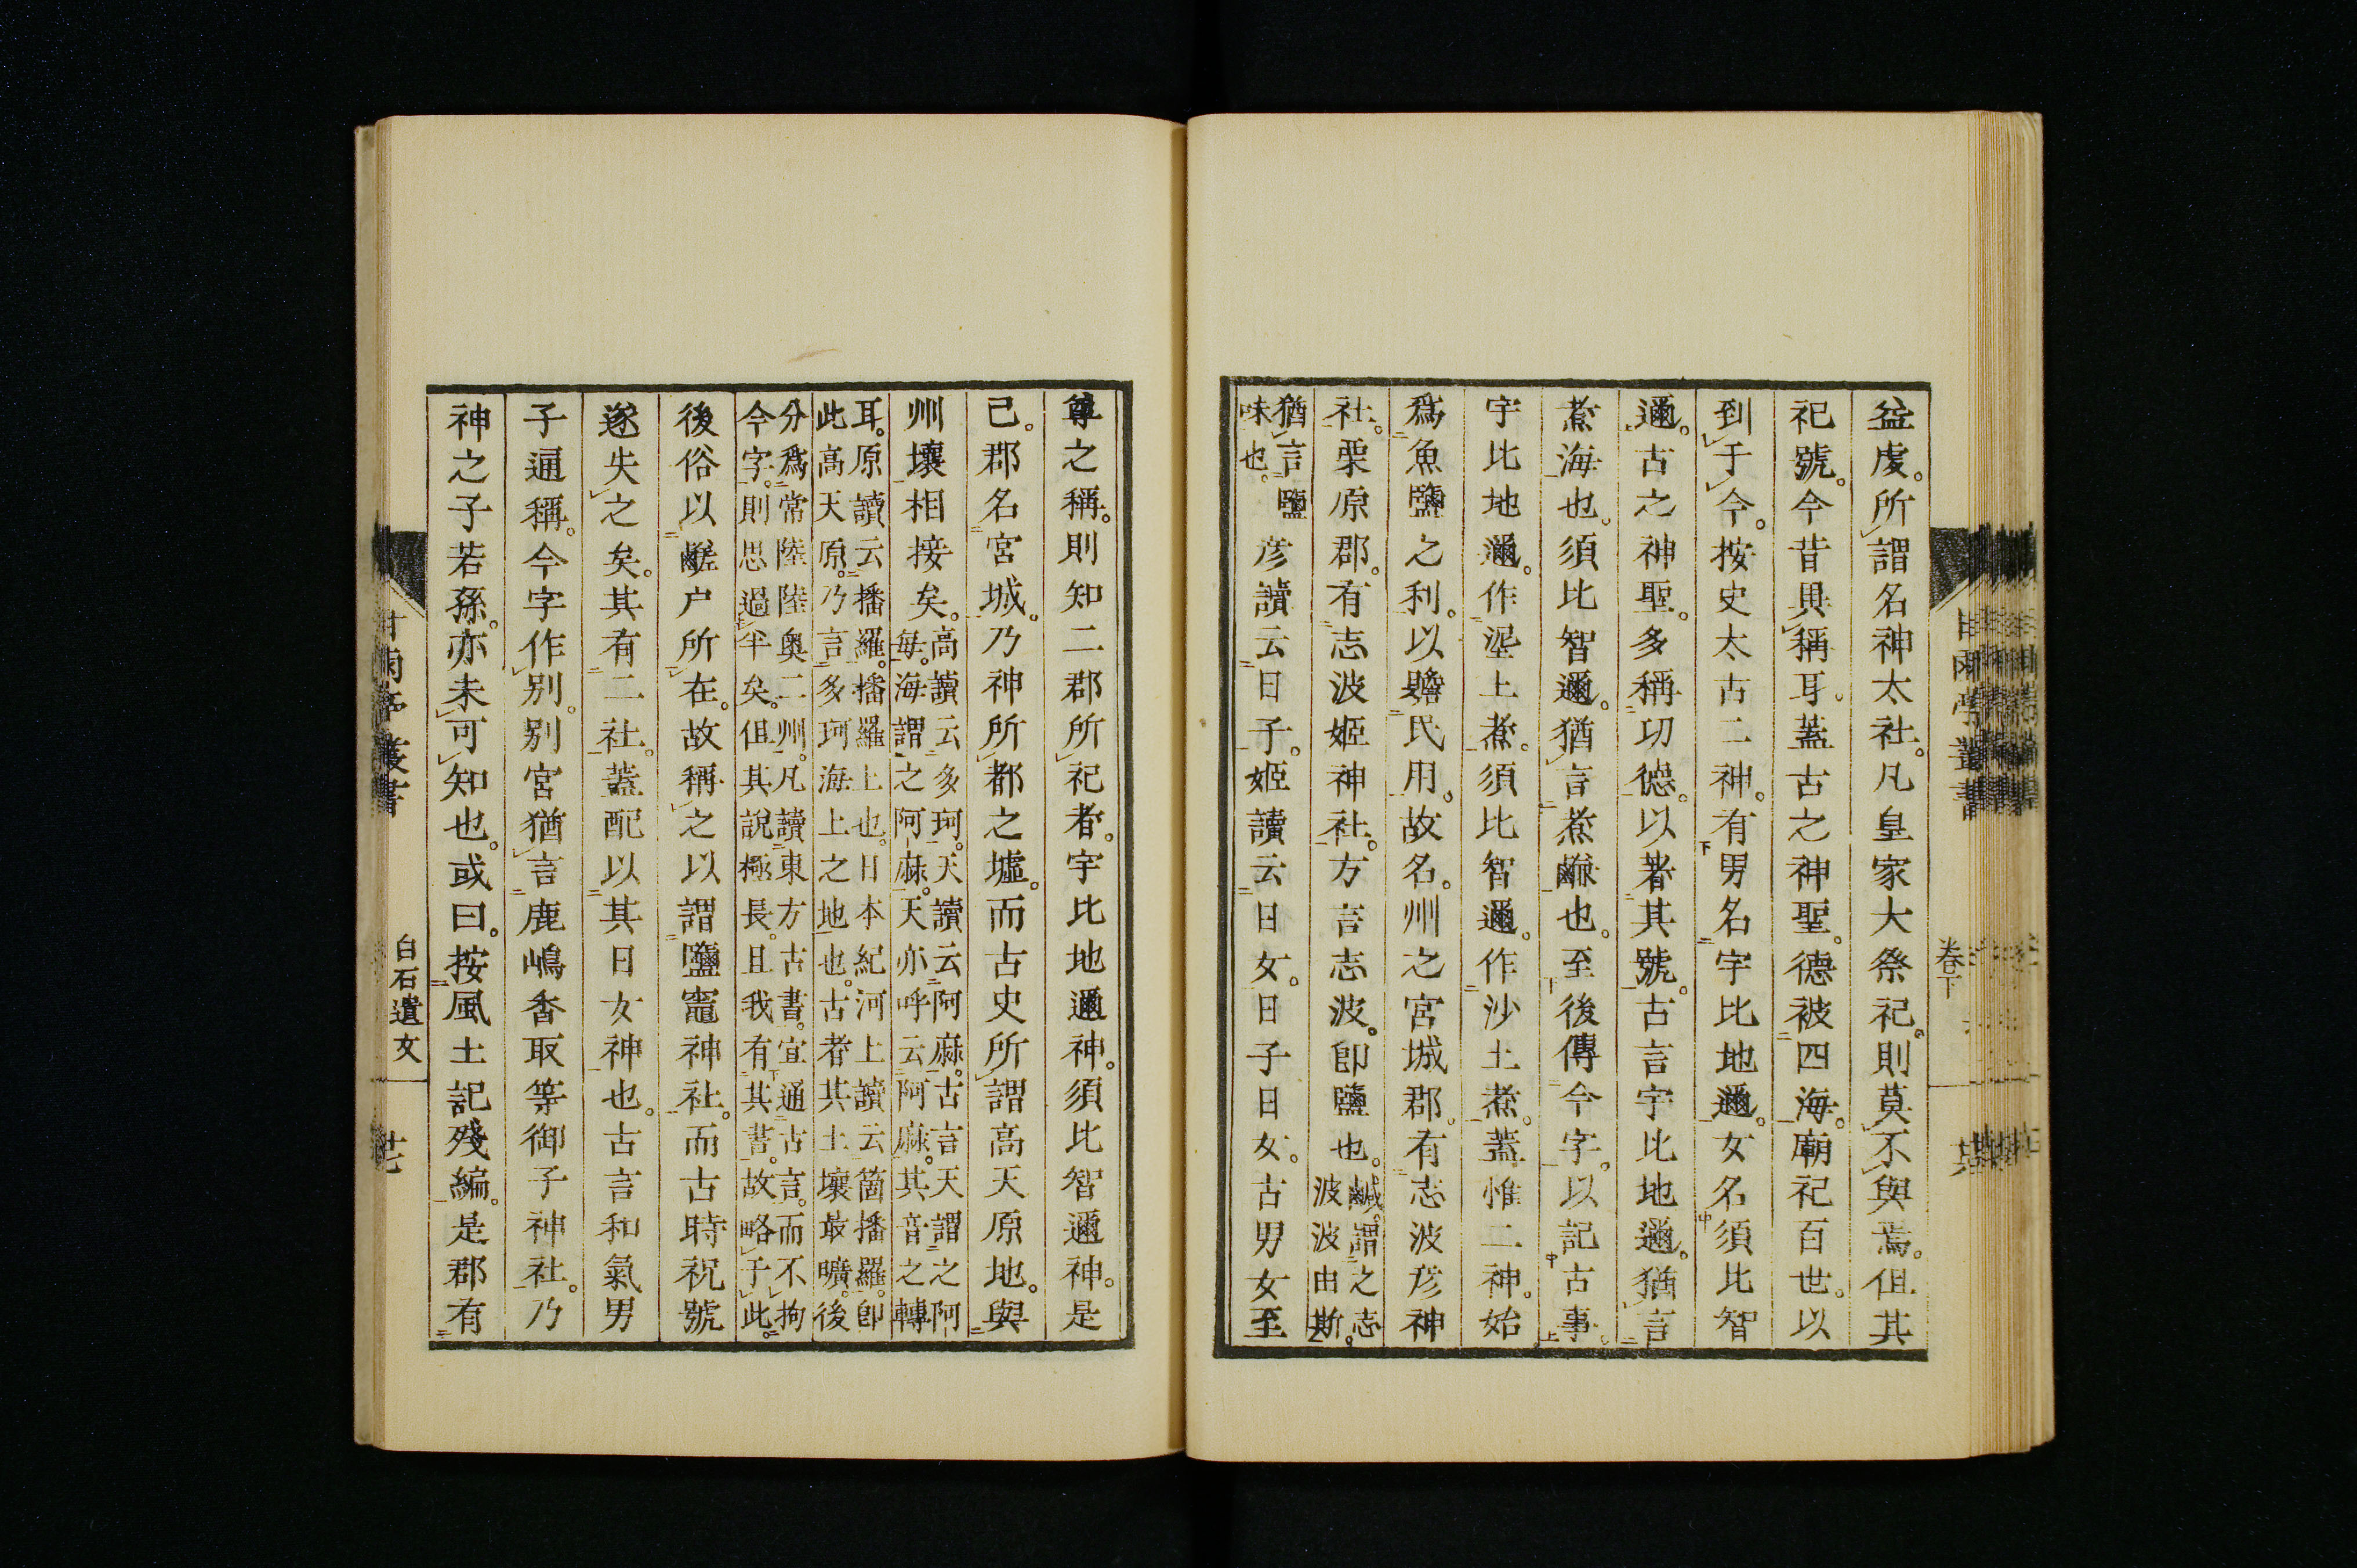 益虔。所謂名神太社。凡皇家大祭祀。則莫不與焉。但其
祀號。今昔異稱耳。蓋古之神聖。德被四海。廟祀百世。以
到于今。按史太古二神。有男名宇比地邇。女名須比智
邇。古之神聖。多稱功德。以著其號。古言宇比地邇。猶言
煮海也。須比智邇。猶言煮鹹也。至後傳今字。以記古事。
宇比地邇。作埿土煮。須比智邇。作沙土煮。蓋惟二神。始
爲魚鹽之利。以贍民用。故名。州之宮城郡。有志波彦神
社。栗原郡。有志波姬神社。方言志波。卽鹽也。鹹。謂之志
波波由斯。
猶言鹽
味也。彦讀云日子。姬讀云日女。日子日女。古男女至
尊之稱。則知二郡所祀者。宇比地邇神。須比智邇神。是
已。郡名宮城。乃神所都之墟。而古史所謂高天原地。與
州壤相接矣。高讀云多珂。天讀云阿麻。古言天謂之阿
每。海謂之阿麻。天亦呼云阿麻。其音之轉
耳。原讀云播羅。播羅上也。日本紀河上讀云箇播羅。卽
此高天原。乃言多珂海上之地也。古者其土壤最曠。後
分爲常陸陸奧二州。凡讀東方古書。宜通古言。而不拘
今字。則思過半矣。但其說極長。且我有其書。故略于此。
後俗以鹺戶所在。故稱之以謂鹽竈神社。而古時祝號
遂失之矣。其有二社。蓋配以其日女神也。古言和氣男
子通稱。今字作別。別宮猶言鹿嶋香取等御子神社。乃
神之子若孫。亦未可知也。或曰。按風土記殘編。是郡有
甘雨亭叢書
卷下
白石遺文